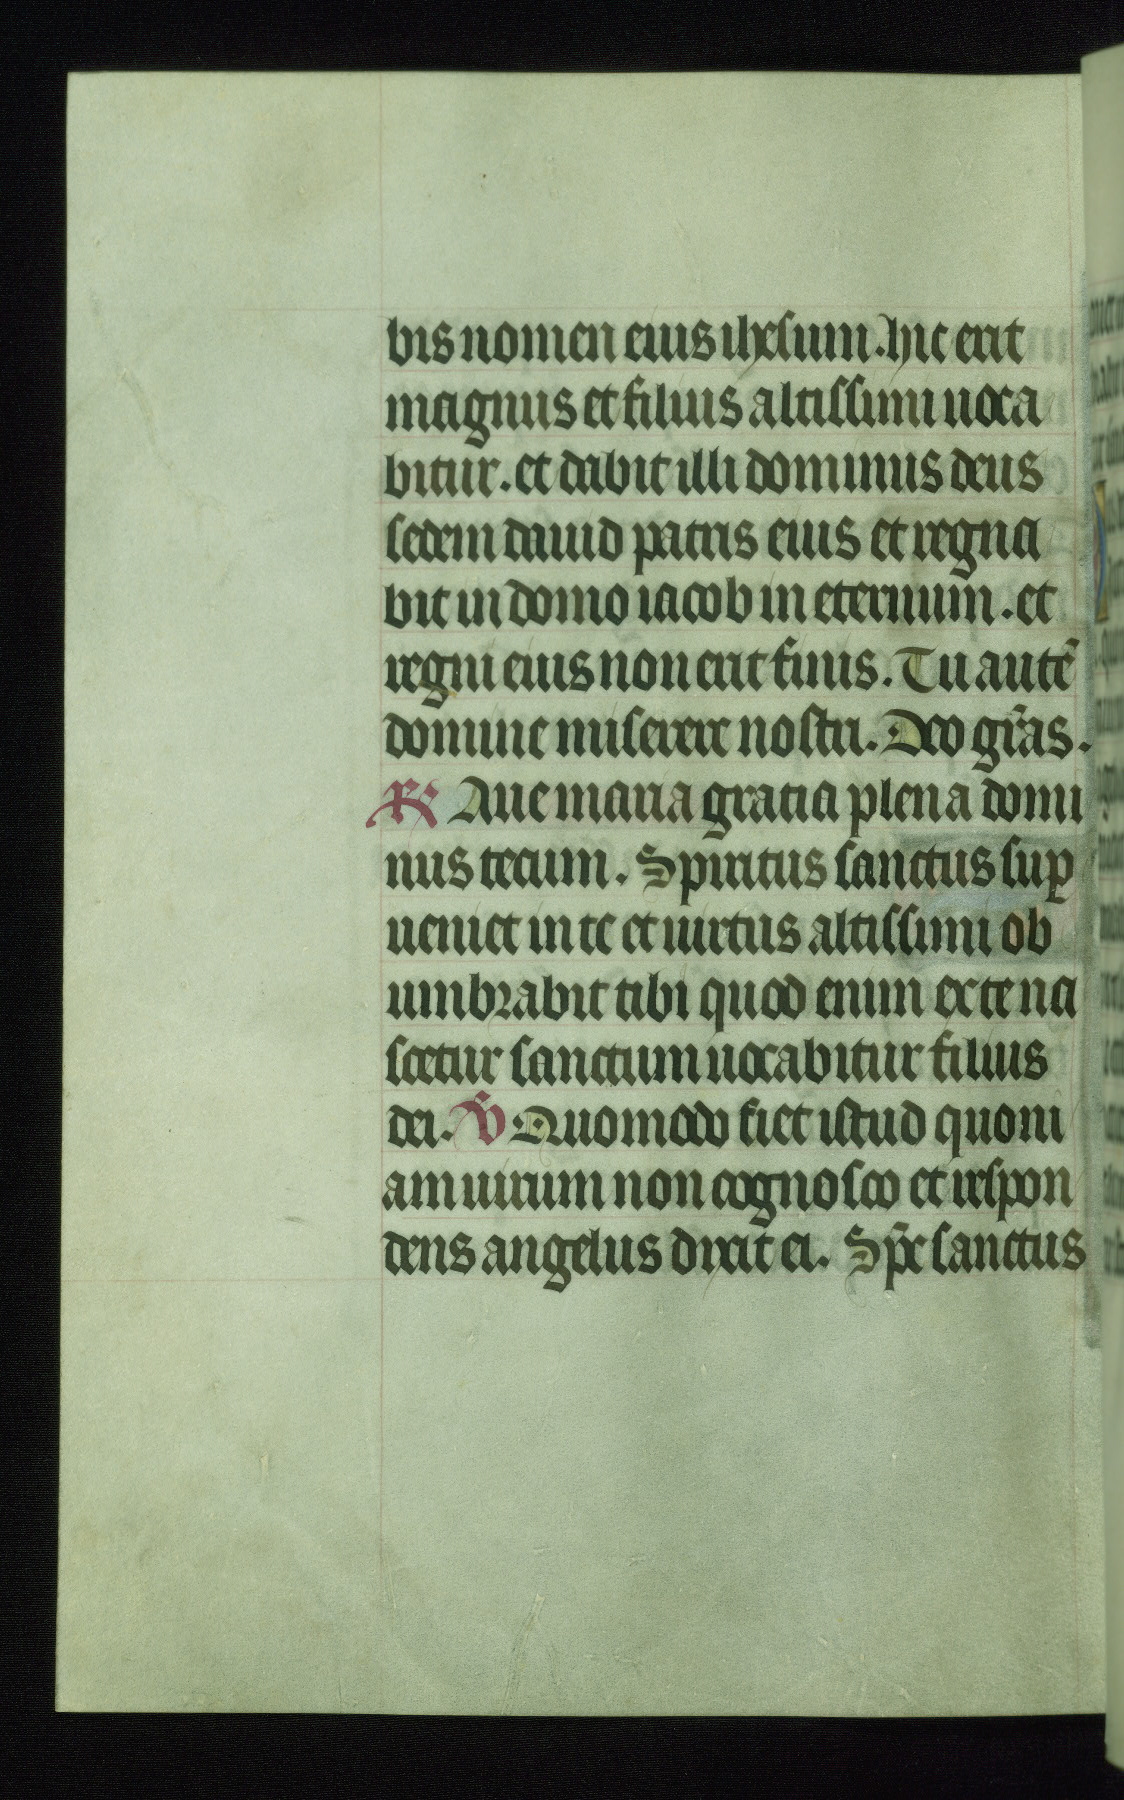 bis nomen eius ihesum. hic erit
magnus et filius altissimi uoca
bitur. et dabit illi dominus deus
sedem dauid patris eius et regna
bit in domo iacob in eternum. et
regni eius non erit finis. Tu autē
domine miserere nostri. Deo gr̄as.
℟ Aue maria gratia plena domi
nus tecum. Spiritus sanctus sup̱
ueniet in te et uirtus altissimi ob
umbrabit tibi quod enim ex te na
scetur sanctum uocabitur filius
dei. ℣ Quomodo fiet istud quoni
am uirum non cognosco et respon
dens angelus dixit ei. Sp̄c sanctus